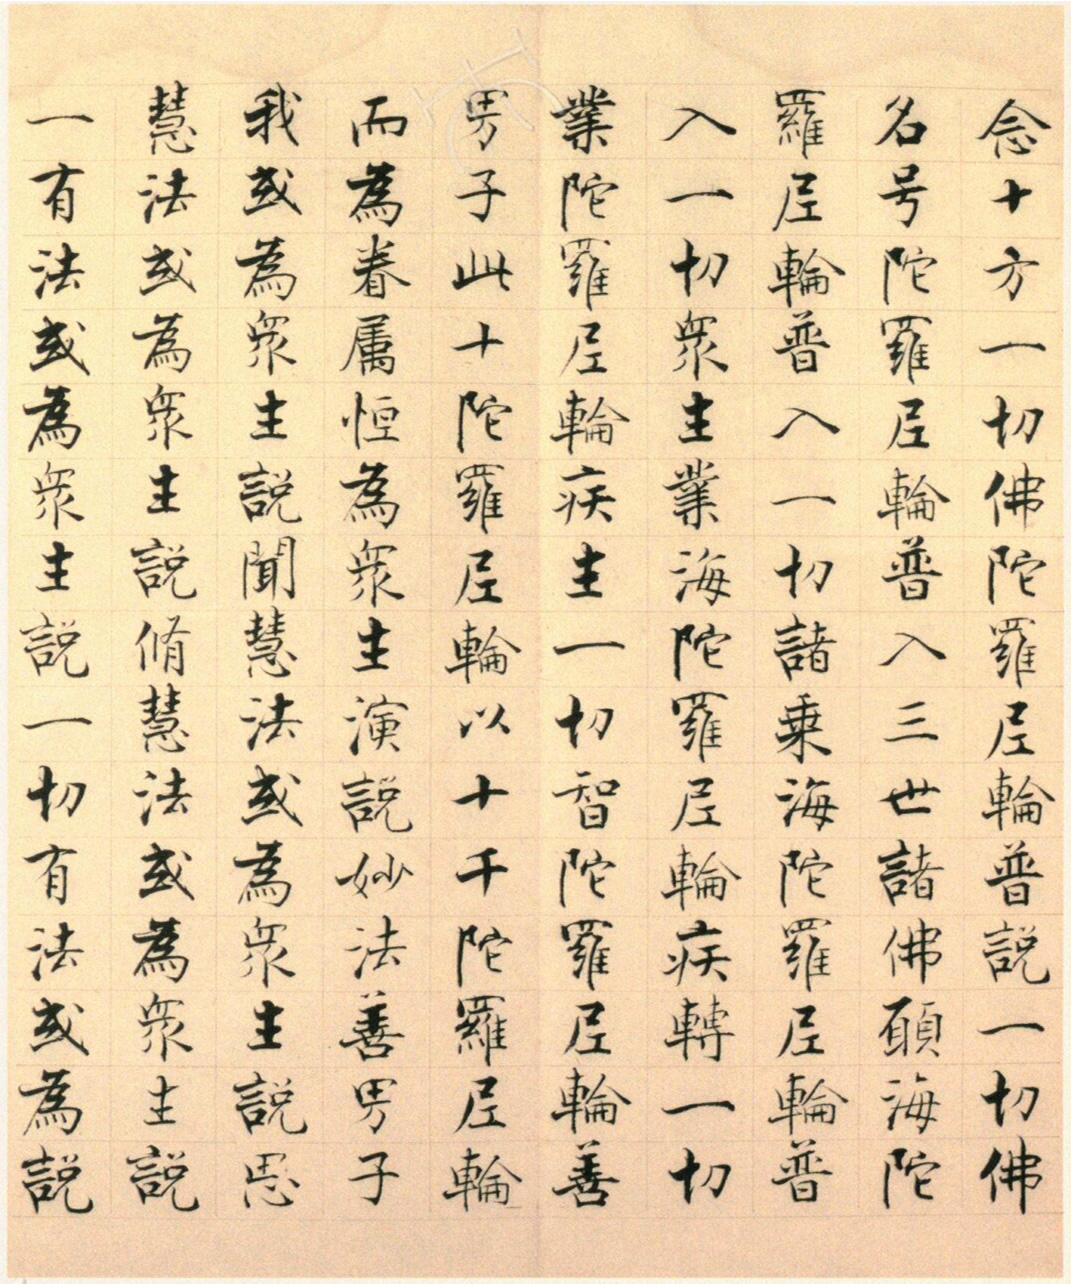 念十方一切佛陀羅尼輪普說一切佛
名号陀羅尼輪普入三世諸佛願海陀
羅尼輪普入一切諸乗海陀羅尼輪普
入一切衆生業海陀羅尼輪疾轉一切
業陀羅尼輪疾生一切智陀羅尼輪善
男子此十陀羅尼輪以十千陀羅尼輪
而為眷属恒為衆生演說妙法善男子
我或為衆生說聞慧法或為衆生說思
慧法或為衆生說脩慧法或為衆生說
一有法或為衆生說一切有法或為說